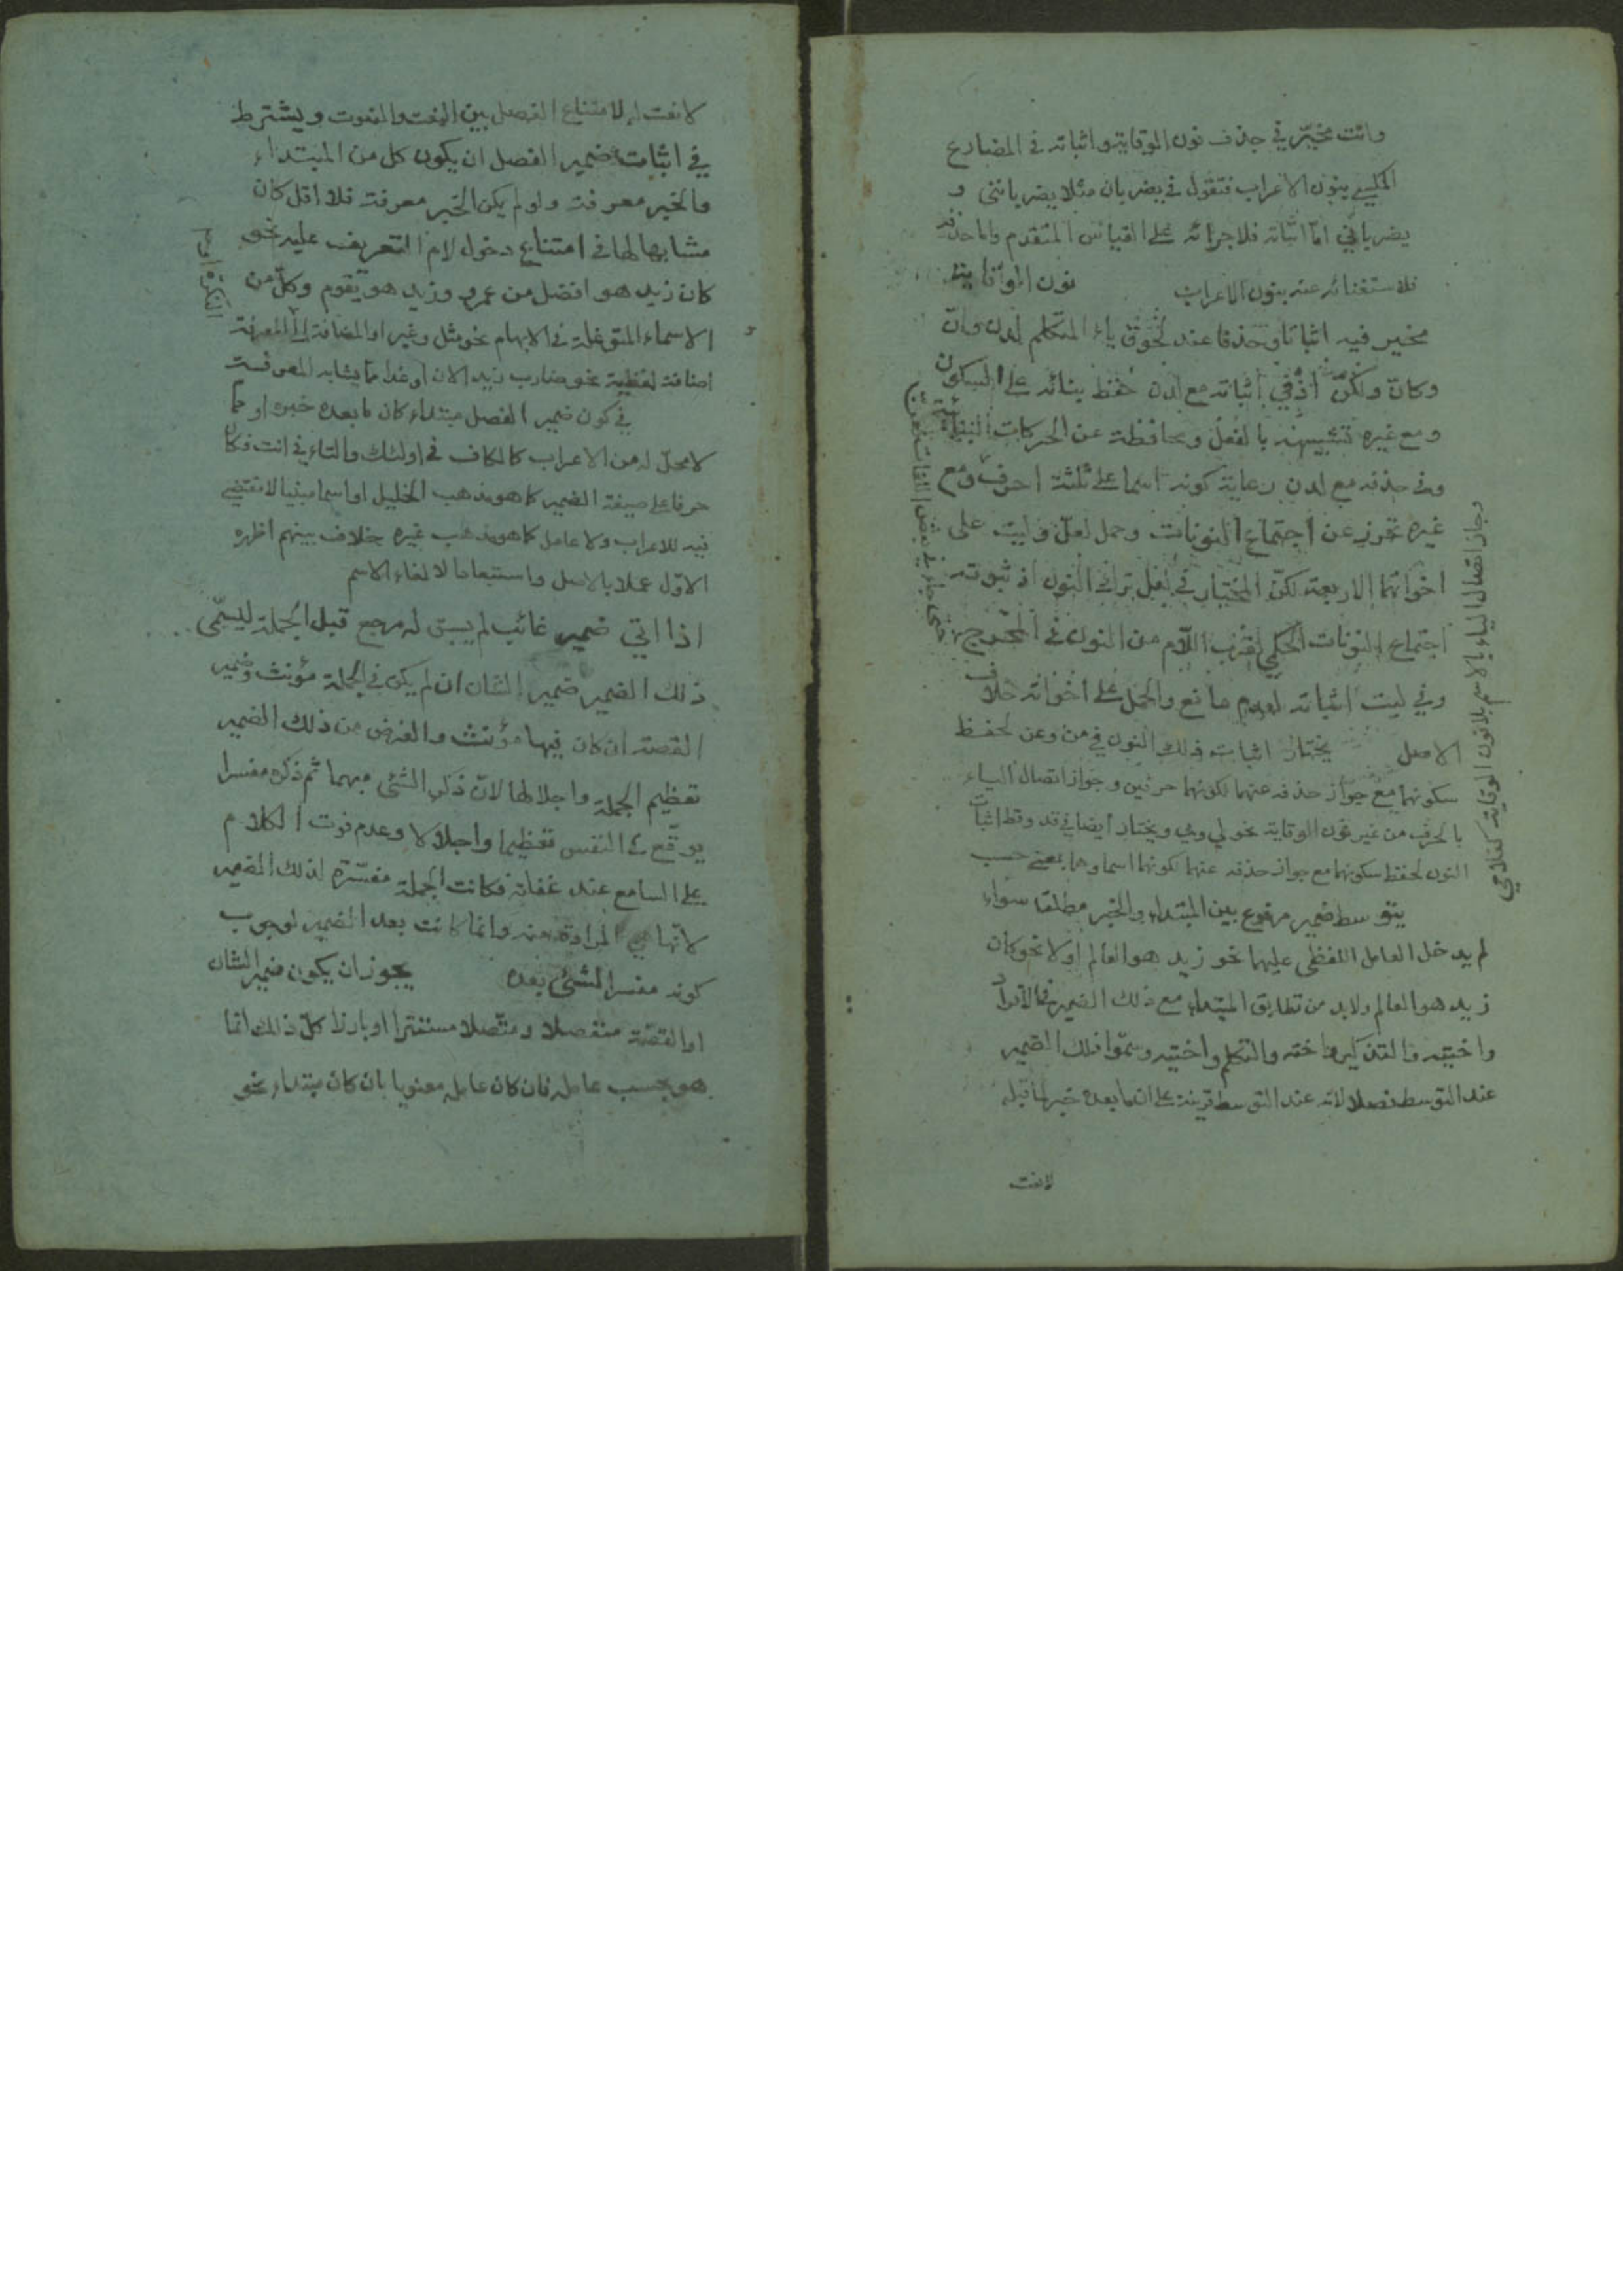 وانت مخيّر في حذف نون الوقاية واثباته في المضارع
المكسي بنون الاعراب فتقول في يضربان مثلا يضربانني و
يضرباني امّا اثباته فلاجرائه على القياس المتقدم واما حذفه
فلاستغنائه عنه بنون الاعراب نون الوقاية
مخير فيه اثباتا وحذفا عند لحوق ياء المتكلم لدن وانّ
وكانّ ولكنّ اذ في اثباته مع لدن حفظ بنائه على السكون
ومع غيره تشبيهه بالفعل ومحافظة عن الحركات البنائية
وفي حذفه مع لدن رعاية كونه اسما على ثلثة احرف ومع
غيره تحرز عن اجتماع النونات وحمل لعلّ وليت على
اخواتهما الاربعة لكنّ المختار في لعل ترك النون اذ ثبوته
اجتماع النونات الحكمي لقرب اللّام من النون في المخرج
وفي ليت اثباته لعدم مانع والحمل على اخواته خلاف
الاصل يختار اثبات ذلك النون في من وعن لحفظ
سكونهما مع جواز حذفه عنهما لكونهما حرفين وجواز اتصال الياء
بالحرف من غير نون الوقاية نحو لي وبي ويختار ايضا في قد وقط اثبات
النون لحفظ سكونهما مع جواز حذفه عنهما لكونهما اسما وهما بمعنى حسب
يتوسط ضمير مرفوع بين المبتداء والخبر مطلقا سواء
لم يدخل العامل اللفظي عليهما نحو زيد هو العالم اولا نحو كان
زيد هو العالم ولابد من تطابق المبتداء مع ذلك الضمير في الافراد
واختيه والتذكير واخته والتكلم واختيه وسمّوا ذلك الضمير
عند التوسط فصلا لانه عند التوسط قرينة على ان ما بعده خبر لما قبله
لا نعت
وجاز اتصال الياء بالاسم بلا نون الوقاية كغلامي
لا نعت له لامتناع الفصل بين النعت والمنعوت ويشترط
في اثبات ضمير الفصل ان يكون كل من المبتداء
والخبر معرفة ولو لم يكن الخبر معرفة فلا اقل كان
مشابها لها في امتناع دخول لام التعريف عليه نحو
كان زيد هو افضل من عمرو وزيد هو يقوم وكلّ من
الاسماء المتوغلة في الابهام نحو مثل وغير او المضافة الى المعرفة
اضافة لفظية نحو ضارب زيد الان او غدا مما يشابه المعرفة
في كون ضمير الفصل مبتداء كان ما بعده خبره او مما
لا محلّ له من الاعراب كالكاف في اولئك والتاء في انت فكان
حرفا على صيغة الضمير كما هو مذهب الخليل او اسما مبنيا لا تقتضي
فيه للاعراب ولا عامل كما هو مذهب غيره خلاف بينهم اظهره
الاوّل عملا بالاصل واستبعادا لالغاء الاسم
اذا اتي ضمير غائب لم يسبق له مرجع قبل الجملة ليسمّى
ذلك الضمير ضمير الشان ان لم يكن في الجملة مؤنث وضمير
القصة ان كان فيها مؤنث والغرض من ذلك الضمير
تعظيم الجملة واجلالها لانّ ذكر الشئ مبهما ثم ذكره مفسرا
يوقّع في النفس تعظيما واجلالا وعدم فوت الكلام
على السامع عند غفلته فكانت الجملة مفسّرة لذلك الضمير
لانّها هي المرادة منه وانما كانت بعد الضمير لوجوب
كونه مفسر الشئ بعده يجوز ان يكون ضمير الشان
او القصّة منفصلا ومتّصلا مستترا او بارزا كلّ ذلك انما
هو بحسب عامله فان كان عامله معنويا بان كان مبتداء نحو